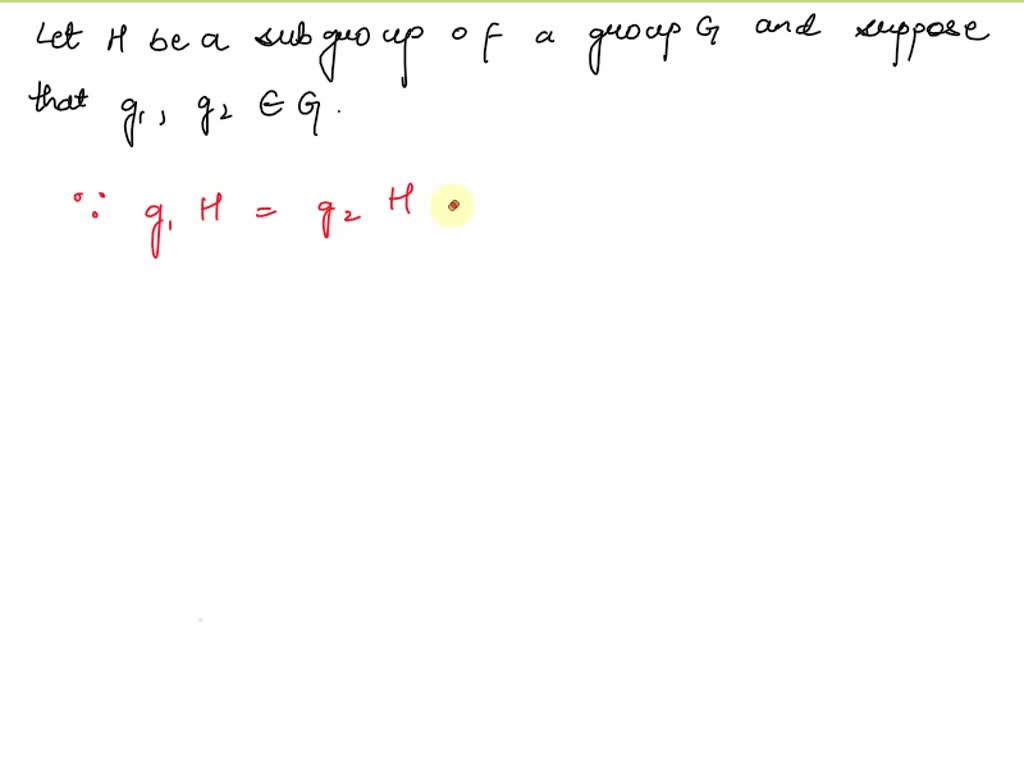 Let H be a subgroup of a group G and suppose
that g₁, g₂ ∈ G.
∵ g₁ H = g₂ H